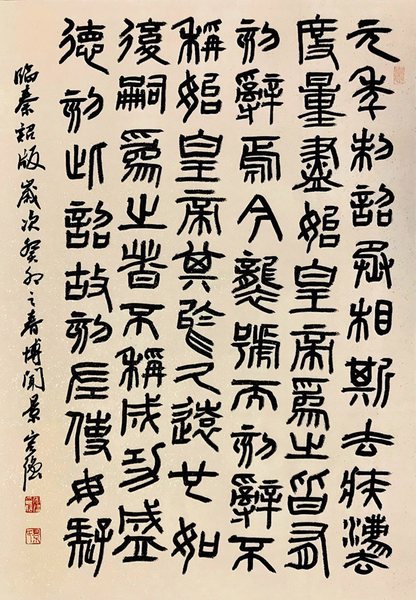 元年制詔丞相斯去疾灋
度量盡始皇帝爲之皆有
刻辭焉今襲號而刻辭不
稱始皇帝其於久遠也如
後嗣爲之者不稱成功盛
德刻此詔故刻左使毋疑
臨秦詔版歲次癸卯之春博聞景